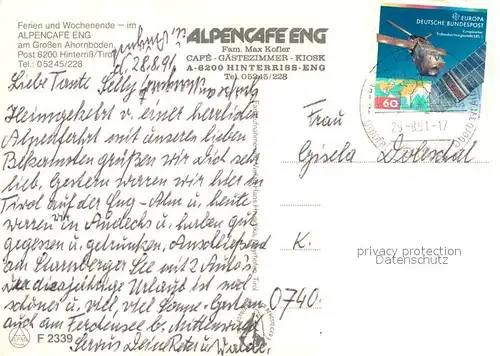 Ferien und Wochenende – im
ALPENCAFÉ ENG
am Großen Ahornboden
Post 6200 Hinterriß/Tirol
Tel.: 05245/228
ALPENCAFE ENG
Fam. Max Kofler
CAFÉ - GÄSTEZIMMER - KIOSK
A-6200 HINTERRISS-ENG
Tel. 05245/228
EUROPA
DEUTSCHE BUNDESPOST
60
29.-8.91-17
d. 28.8.91
Liebe Tante Selly
Heimgekehrt v. einer herrlichen
Alpenfahrt mit unseren lieben
Bekannten grüßen wir dich sehr
lieb. Gestern waren wir hier in
Tirol auf der Eng-Alm u. heute
waren wir in Andechs u. haben gut
gegessen u. getrunken. Anschließend
am Starnberger See mit 2 Auto's.
Der diesjährige Urlaub ist viel
schöner u. viel, viel Sonne. Gestern
auch am
Servus Dein Peter u.
Frau
Gisela Doleschal
K.
0740.
privacy protection
Datenschutz
F 2339